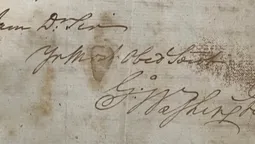 am Dr Sir
Yr Most Obed Servt
Go: Washington